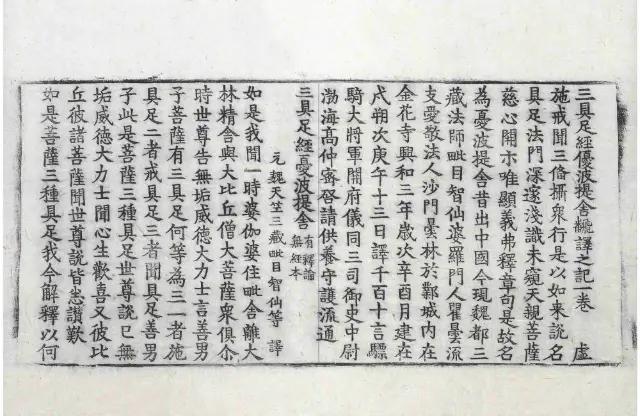 三具足經優波提舍飜譯之記一卷 虛
施戒聞三俻攝衆行是以如來說名
具足法門深邃淺識未窺天親菩薩
慈心開示唯顯義弗釋章句是故名
為憂波提舍昔出中國今現魏都三
藏法師毗目智仙婆羅門人瞿曇流
支愛敬法人沙門曇林於鄴城內在
金花寺興和三年歲次辛酉月建在
戌朔次庚午十三日譯千百十言驃
騎大將軍開府儀同三司御史中尉
渤海高仲密啓請供養守護流通
三具足經憂波提舍 有釋論 無經本
元魏天竺三藏毗目智仙等 譯
如是我聞一時婆伽婆住毗舍離大
林精舍與大比丘僧大菩薩衆俱尒
時世尊告無垢威德大力士言善男
子菩薩有三具足何等為三一者施
具足二者戒具足三者聞具足善男
子此是菩薩三種具足世尊說已無
垢威德大力士聞心生歡喜又彼比
丘彼諸菩薩聞世尊說皆悉讚歎
如是菩薩三種具足我今解釋以何